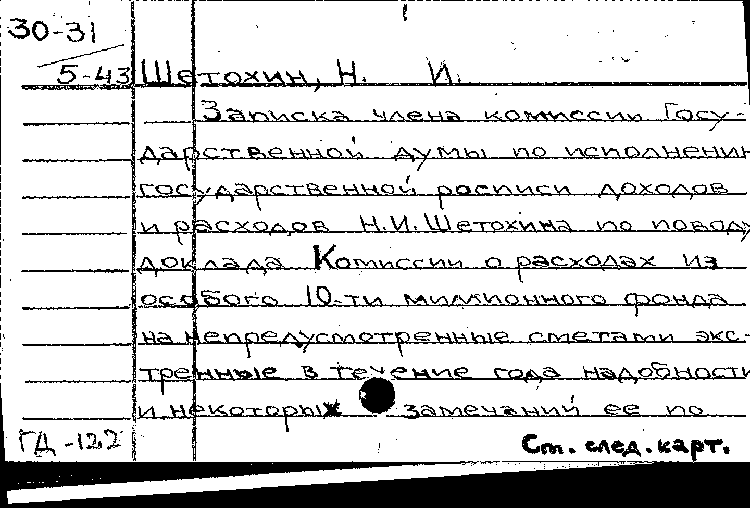 30-31
5-43 Шетохин, Н. И.
Записка члена комиссии Госу-
дарственной думы по исполнению
государственной росписи доходов
и расходов Н.И. Шетохина по поводу
доклада Комиссии о расходах из
особого 10-ти миллионного фонда
на непредусмотренные сметами экс-
тренные в течение года надобности
и некоторых замечаний ее по
ГД-122
См. след. карт.